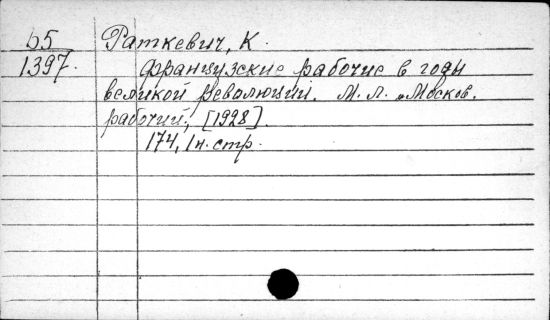 б5 Раткевич, К.
1397. Французские рабочие в годы
великой революции. М. Л. „Москов.
рабочий, [1928].
174, 1н. стр.